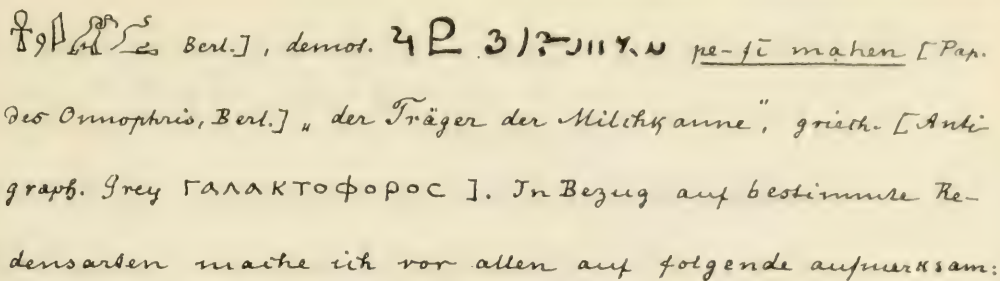 Berl.], demot. pe-fi mahen [Pap.
des Onnophris, Berl.] „der Träger der Milchkanne", griech. [Anti
graph. Grey ΓΑΛΑΚΤΟΦΟΡΟC]. In Bezug auf bestimmte Re-
densarten mache ich vor allen auf folgende aufmerksam: